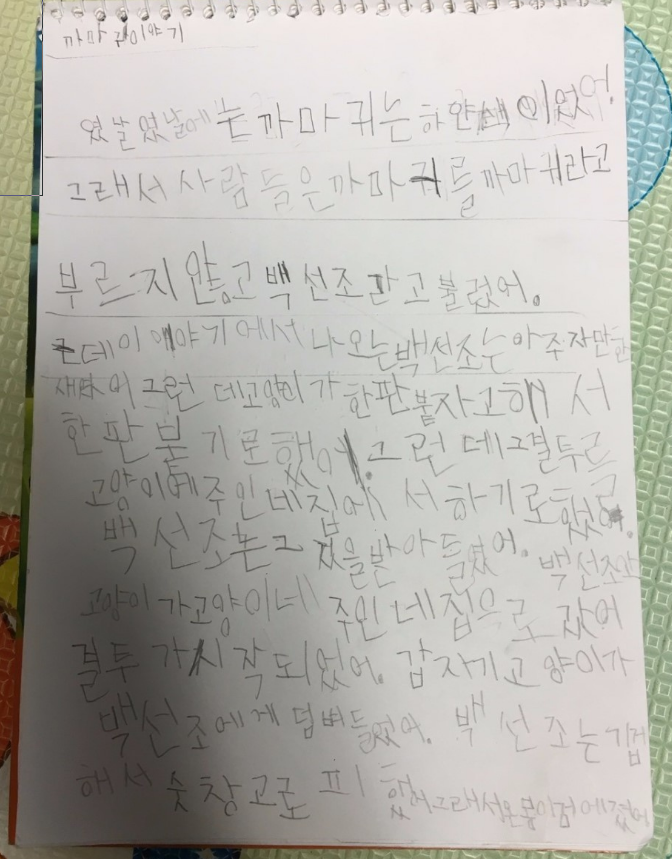 까마귀이야기
옜날 옜날에는 까마귀는 하얀색이었어.
그래서 사람들은 까마귀를 까마귀라고
부르지 않고 백선조라고 불렀어.
근데 이 이야기에서 나오는 백선조는 아주 자만한
새다 어 그런데 고양이가 한판 붙자고 해서
한판 붙기로 했어. 그런데 그 결투르
고양이에 주인네 집에서 하기로 했어.
백선조는 그 것을 받아들였어. 백선조와
고양이가 고양이네 주인네 집으로 갔어
결투가 시작되었어. 갑자기 고양이가
백선조에게 덤벼들었어. 백선조는 기겁
해서 숯창고로 피했어 그래서 온몽이 검에졌어